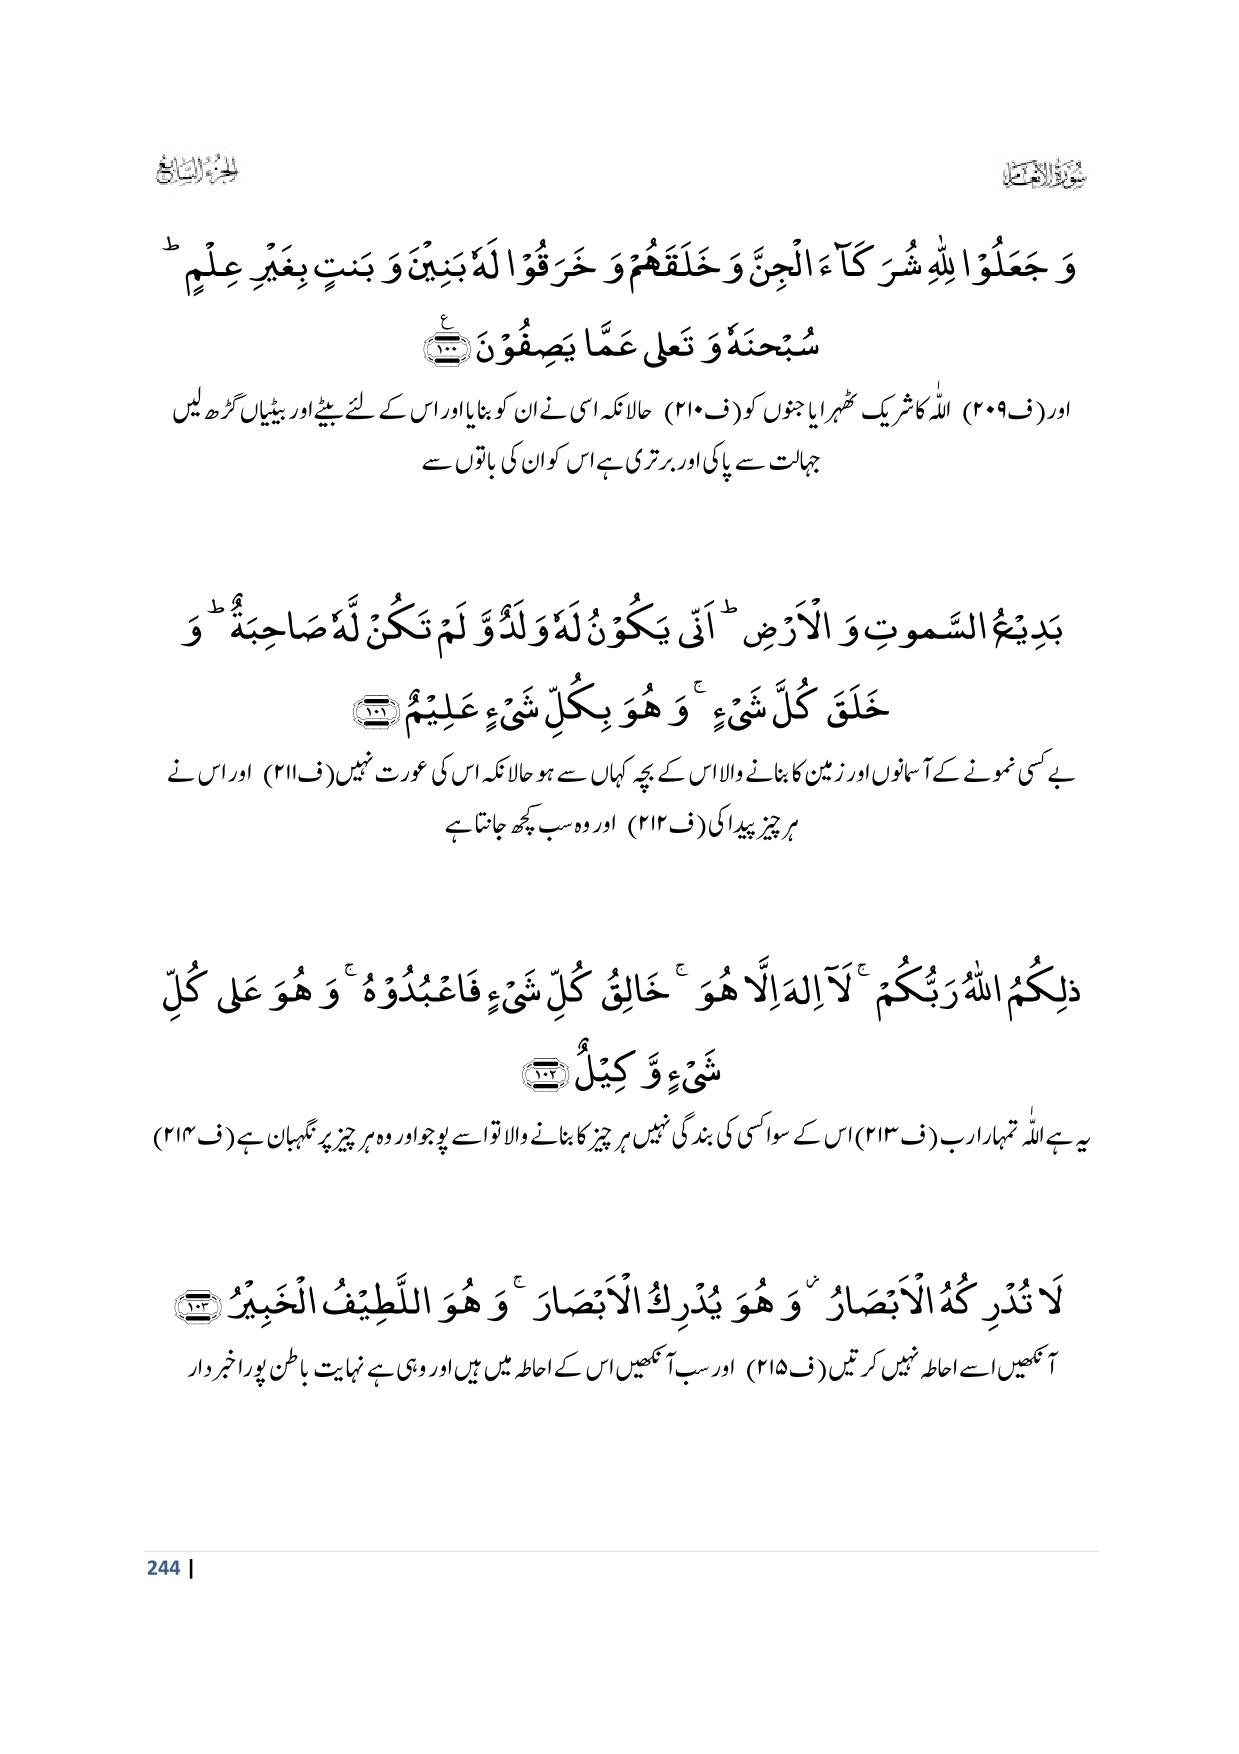 سُوْرَۃُ الْاَنْعَام
الجُزءُ السَّابِع
وَ جَعَلُوْا لِلّٰهِ شُرَكَآءَ الْجِنَّ وَ خَلَقَهُمْ وَ خَرَقُوْا لَهٗ بَنِیْنَ وَ بَنٰتٍ بِغَیْرِ عِلْمٍ ؕ
سُبْحٰنَهٗ وَ تَعٰلٰی عَمَّا یَصِفُوْنَ ﴿۱۰۰﴾ۧ
اور (ف۲۰۹) اللّٰہ کا شریک ٹھہرایا جنوں کو (ف۲۱۰) حالانکہ اسی نے ان کو بنایا اور اس کے لئے بیٹے اور بیٹیاں گڑھ لیں
جہالت سے پاکی اور برتری ہے اس کو ان کی باتوں سے
بَدِیْعُ السَّمٰوٰتِ وَ الْاَرْضِ ؕ اَنّٰی یَكُوْنُ لَهٗ وَلَدٌ وَّ لَمْ تَكُنْ لَّهٗ صَاحِبَةٌ ؕ وَ
خَلَقَ كُلَّ شَیْءٍ ۚ وَ هُوَ بِكُلِّ شَیْءٍ عَلِیْمٌ ﴿۱۰۱﴾
بے کسی نمونے کے آسمانوں اور زمین کا بنانے والا اس کے بچہ کہاں سے ہو حالانکہ اس کی عورت نہیں (ف۲۱۱) اور اس نے
ہر چیز پیدا کی (ف۲۱۲) اور وہ سب کچھ جانتا ہے
ذٰلِكُمُ اللّٰهُ رَبُّكُمْ ۚ لَاۤ اِلٰهَ اِلَّا هُوَ ۚ خَالِقُ كُلِّ شَیْءٍ فَاعْبُدُوْهُ ۚ وَ هُوَ عَلٰی كُلِّ
شَیْءٍ وَّكِیْلٌ ﴿۱۰۲﴾
یہ ہے اللّٰہ تمہارا رب (ف۲۱۳) اس کے سوا کسی کی بندگی نہیں ہر چیز کا بنانے والا تو اسے پوجو اور وہ ہر چیز پر نگہبان ہے (ف۲۱۴)
لَا تُدْرِكُهُ الْاَبْصَارُ ؗ وَ هُوَ یُدْرِكُ الْاَبْصَارَ ۚ وَ هُوَ اللَّطِیْفُ الْخَبِیْرُ ﴿۱۰۳﴾
آنکھیں اسے احاطہ نہیں کرتیں (ف۲۱۵) اور سب آنکھیں اس کے احاطہ میں ہیں اور وہی ہے نہایت باطن پورا خبردار
244 |